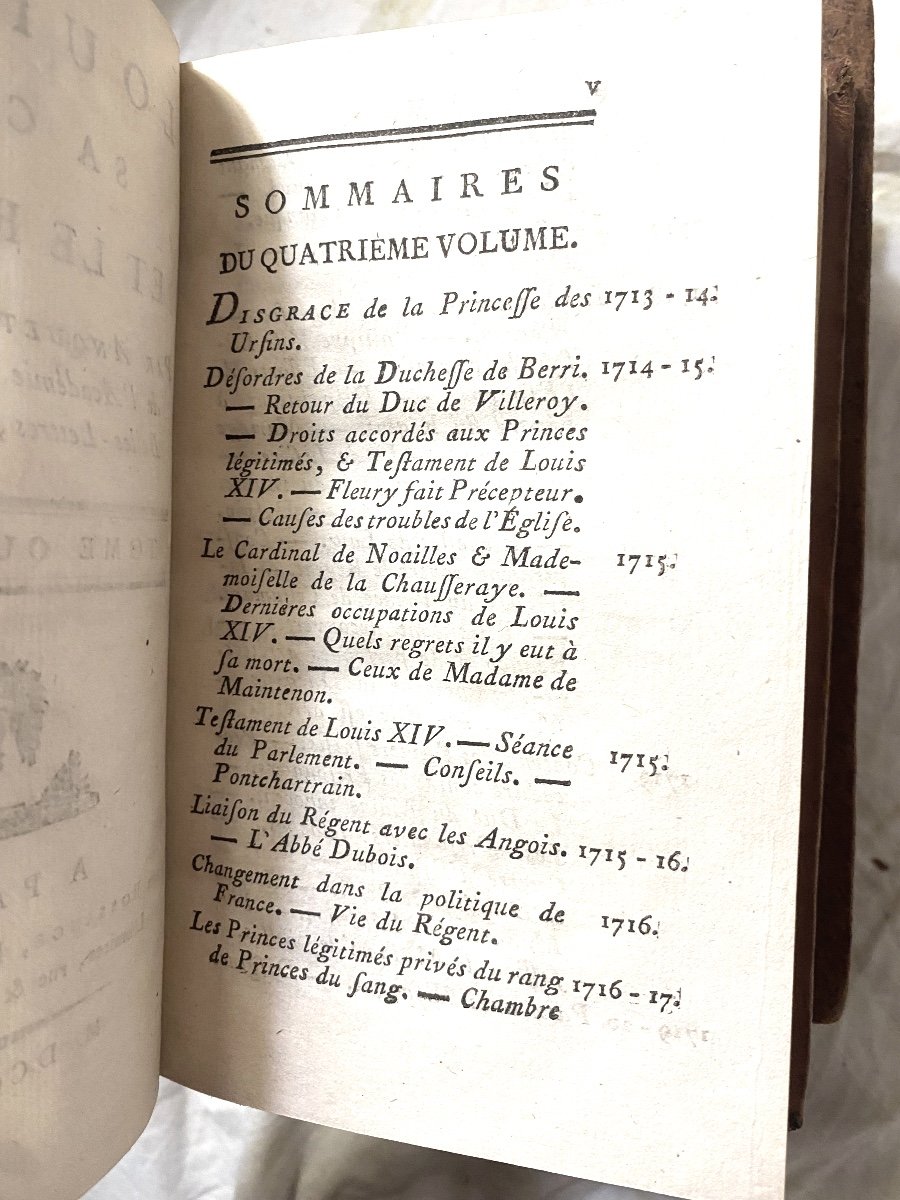 v
SOMMAIRES
DU QUATRIÈME VOLUME.
DISGRACE de la Princeſſe des 1713 - 14.
Urſins.
Déſordres de la Ducheſſe de Berri. 1714 - 15.
— Retour du Duc de Villeroy.
— Droits accordés aux Princes
légitimés, & Teſtament de Louis
XIV. — Fleury fait Précepteur.
— Cauſes des troubles de l'Égliſe.
Le Cardinal de Noailles & Made- 1715.
moiſelle de la Chauſſeraye. —
Dernières occupations de Louis
XIV. — Quels regrets il y eut à
ſa mort. — Ceux de Madame de
Maintenon.
Teſtament de Louis XIV. — Séance 1715.
du Parlement. — Conſeils. —
Pontchartrain.
Liaiſon du Régent avec les Angois. 1715 - 16.
— L'Abbé Dubois.
Changement dans la politique de 1716.
France. — Vie du Régent.
Les Princes légitimés privés du rang 1716 - 17.
de Princes du ſang. — Chambre